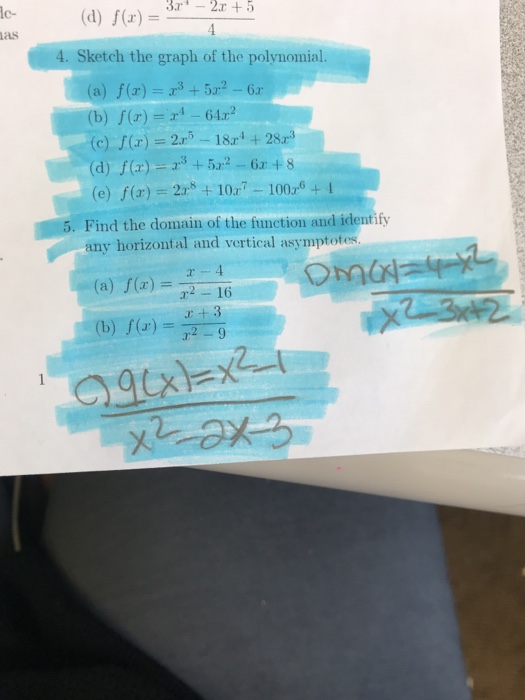 le-
nas
(d) f(x) = 3x⁴ − 2x + 5 / 4
4. Sketch the graph of the polynomial.
(a) f(x) = x³ + 5x² − 6x
(b) f(x) = x⁴ − 64x²
(c) f(x) = 2x⁵ − 18x⁴ + 28x³
(d) f(x) = x³ + 5x² − 6x + 8
(e) f(x) = 2x⁸ + 10x⁷ − 100x⁶ + 1
5. Find the domain of the function and identify
any horizontal and vertical asymptotes.
(a) f(x) = x − 4 / x² − 16
(b) f(x) = x + 3 / x² − 9
D m(x)=4-x² / x²-3x+2
1
c) g(x)=x²-1 / x²-2x-3